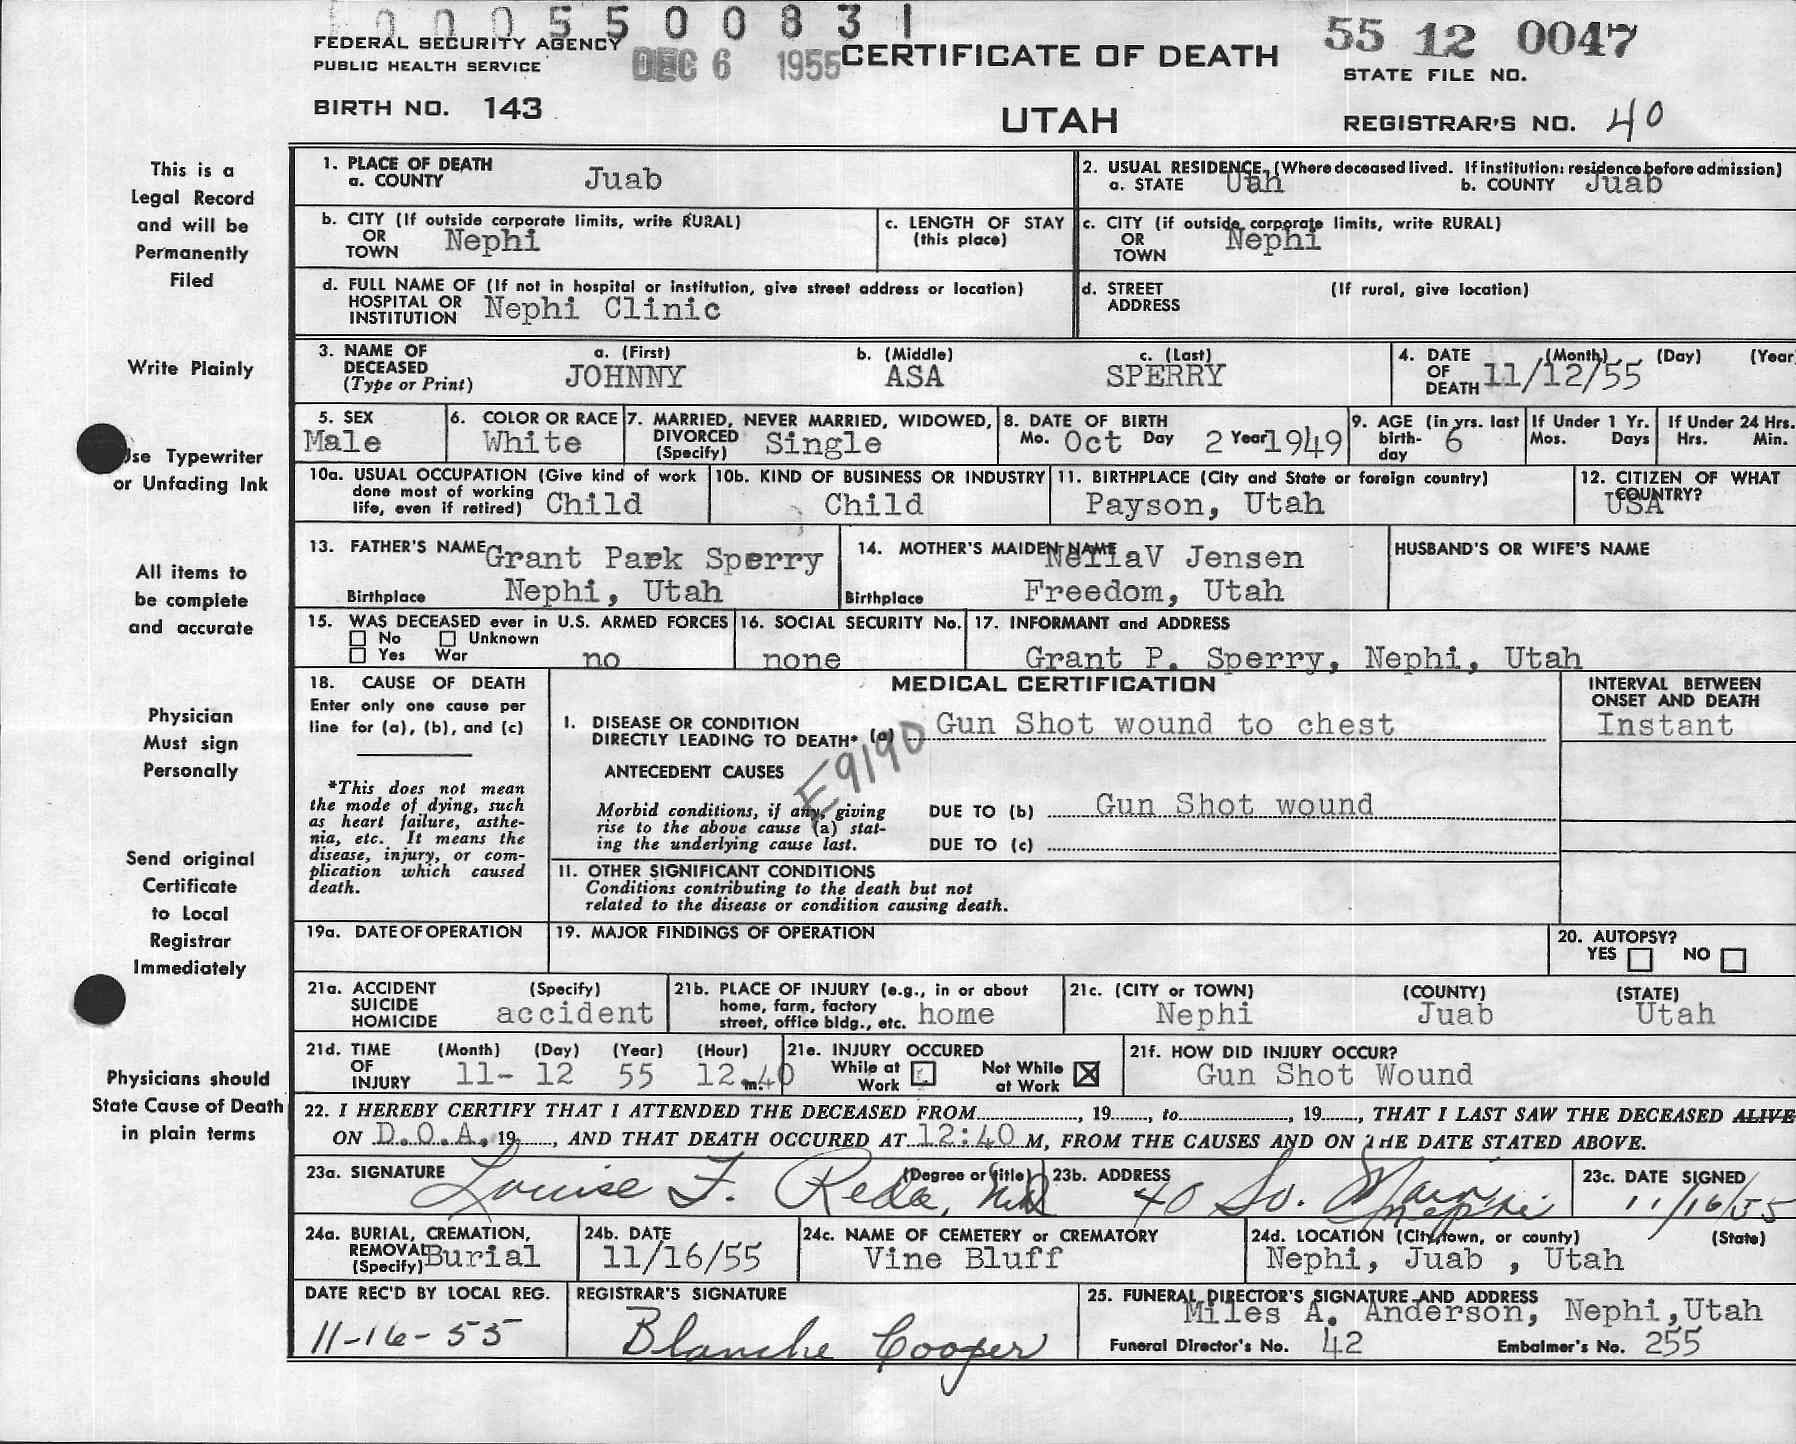 0005500831
FEDERAL SECURITY AGENCY
PUBLIC HEALTH SERVICE
DEC 6 1955
CERTIFICATE OF DEATH
55 12 0047
STATE FILE NO.
BIRTH NO. 143
UTAH
REGISTRAR'S NO. 40
This is a
Legal Record
and will be
Permanently
Filed
Write Plainly
Use Typewriter
or Unfading Ink
All items to
be complete
and accurate
Physician
Must sign
Personally
Send original
Certificate
to Local
Registrar
Immediately
Physicians should
State Cause of Death
in plain terms
1. PLACE OF DEATH
a. COUNTY Juab
2. USUAL RESIDENCE (Where deceased lived. If institution: residence before admission)
a. STATE Uah b. COUNTY Juab
b. CITY (If outside corporate limits, write RURAL)
OR
TOWN Nephi
c. LENGTH OF STAY
(this place)
c. CITY (if outside corporate limits, write RURAL)
OR
TOWN Nephi
d. FULL NAME OF (If not in hospital or institution, give street address or location)
HOSPITAL OR
INSTITUTION Nephi Clinic
d. STREET (If rural, give location)
ADDRESS
3. NAME OF
DECEASED
(Type or Print)
a. (First) b. (Middle) c. (Last)
JOHNNY ASA SPERRY
4. DATE (Month) (Day) (Year
OF
DEATH 11/12/55
5. SEX
Male
6. COLOR OR RACE
White
7. MARRIED, NEVER MARRIED, WIDOWED,
DIVORCED
(Specify) Single
8. DATE OF BIRTH
Mo. Oct Day 2 Year 1949
9. AGE (in yrs. last
birth-
day 6
If Under 1 Yr.
Mos. Days
If Under 24 Hrs.
Hrs. Min.
10a. USUAL OCCUPATION (Give kind of work
done most of working
life, even if retired) Child
10b. KIND OF BUSINESS OR INDUSTRY
Child
11. BIRTHPLACE (City and State or foreign country)
Payson, Utah
12. CITIZEN OF WHAT
COUNTRY?
USA
13. FATHER'S NAME Grant Park Sperry
Birthplace Nephi, Utah
14. MOTHER'S MAIDEN NAME NellaV Jensen
Birthplace Freedom, Utah
HUSBAND'S OR WIFE'S NAME
15. WAS DECEASED ever in U.S. ARMED FORCES
No Unknown
Yes War no
16. SOCIAL SECURITY No.
none
17. INFORMANT and ADDRESS
Grant P. Sperry, Nephi, Utah
18. CAUSE OF DEATH
Enter only one cause per
line for (a), (b), and (c)
*This does not mean
the mode of dying, such
as heart failure, asthe-
nia, etc. It means the
disease, injury, or com-
plication which caused
death.
MEDICAL CERTIFICATION
I. DISEASE OR CONDITION
DIRECTLY LEADING TO DEATH* (a) Gun Shot wound to chest
E9190
ANTECEDENT CAUSES
Morbid conditions, if any, giving
rise to the above cause (a) stat-
ing the underlying cause last.
DUE TO (b) Gun Shot wound
DUE TO (c)
II. OTHER SIGNIFICANT CONDITIONS
Conditions contributing to the death but not
related to the disease or condition causing death.
INTERVAL BETWEEN
ONSET AND DEATH
Instant
19a. DATE OF OPERATION
19. MAJOR FINDINGS OF OPERATION
20. AUTOPSY?
YES NO
21a. ACCIDENT (Specify)
SUICIDE
HOMICIDE accident
21b. PLACE OF INJURY (e.g., in or about
home, farm, factory
street, office bldg., etc. home
21c. (CITY or TOWN) (COUNTY) (STATE)
Nephi Juab Utah
21d. TIME (Month) (Day) (Year) (Hour)
OF
INJURY 11- 12 55 12 m. 40
21e. INJURY OCCURED
While at Not While
Work at Work
21f. HOW DID INJURY OCCUR?
Gun Shot Wound
22. I HEREBY CERTIFY THAT I ATTENDED THE DECEASED FROM, 19, to, 19, THAT I LAST SAW THE DECEASED ALIVE
ON D.O.A. 19, AND THAT DEATH OCCURED AT 12:40 M, FROM THE CAUSES AND ON THE DATE STATED ABOVE.
23a. SIGNATURE (Degree or title)
Louise F.
23b. ADDRESS
40 So. Main
Nephi
23c. DATE SIGNED
11/16/55
24a. BURIAL, CREMATION,
REMOVAL
(Specify) Burial
24b. DATE
11/16/55
24c. NAME OF CEMETERY OR CREMATORY
Vine Bluff
24d. LOCATION (City, town, or county) (State)
Nephi, Juab , Utah
DATE REC'D BY LOCAL REG.
11-16-55
REGISTRAR'S SIGNATURE
Blanche Cooper
25. FUNERAL DIRECTOR'S SIGNATURE AND ADDRESS
Miles A. Anderson, Nephi,Utah
Funeral Director's No. 42 Embalmer's No. 255